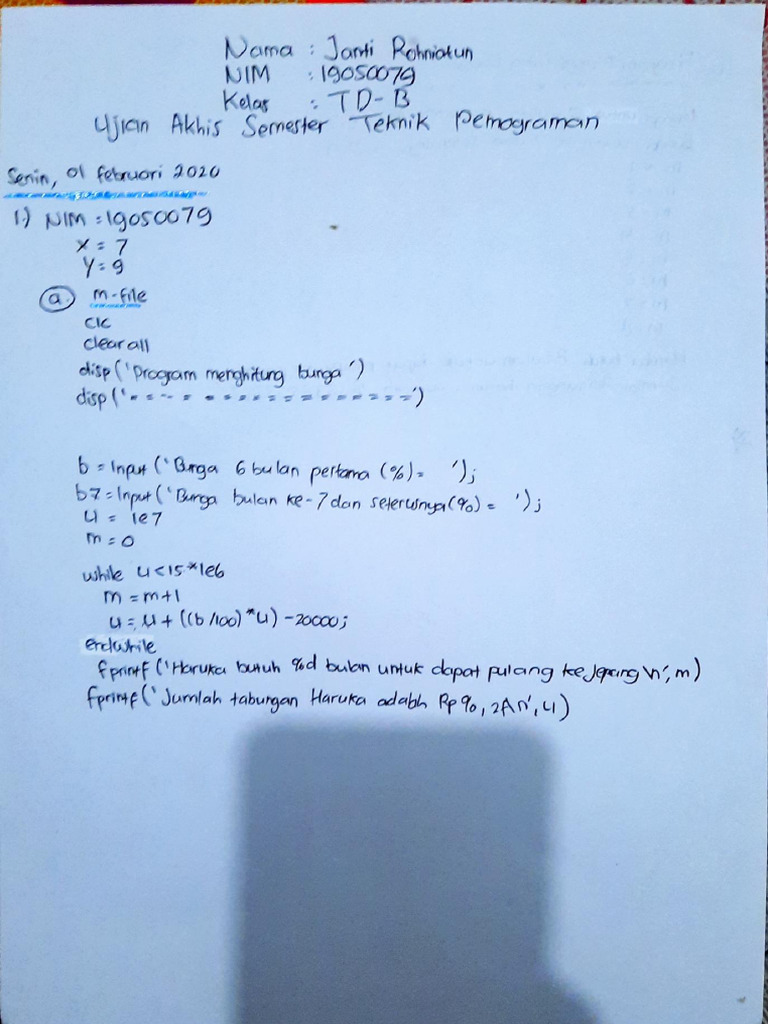 Nama : Janti Rohniatun
NIM : 19050079
Kelas : TD-B
Ujian Akhis Semester Teknik Pemograman
Senin, 01 februari 2020
1.) NIM = 19050079
X = 7
Y = 9
a. m-file
clc
clear all
disp ('Program menghitung bunga')
disp ('==================')
b = Input ('Bunga 6 bulan pertama (%) = ');
b7 = Input ('Bunga bulan ke-7 dan seterusnya (%) = ');
u = 1e7
m = 0
while u<15*1e6
m = m+1
u = u + ((b/100)*u) - 20000;
endwhile
fprintf ('Haruka butuh %d bulan untuk dapat pulang ke Jepang \n', m)
fprintf ('Jumlah tabungan Haruka adalah Rp %, 2f\n', u)